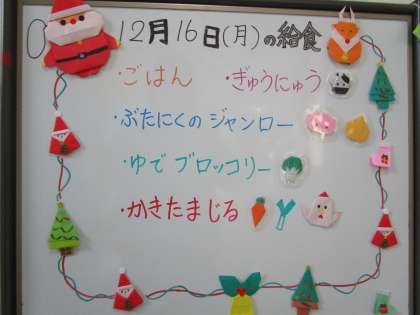 12月16日(月)の給食
・ごはん ・ぎゅうにゅう
・ぶたにくのジャンロー
・ゆでブロッコリー
・かきたまじる